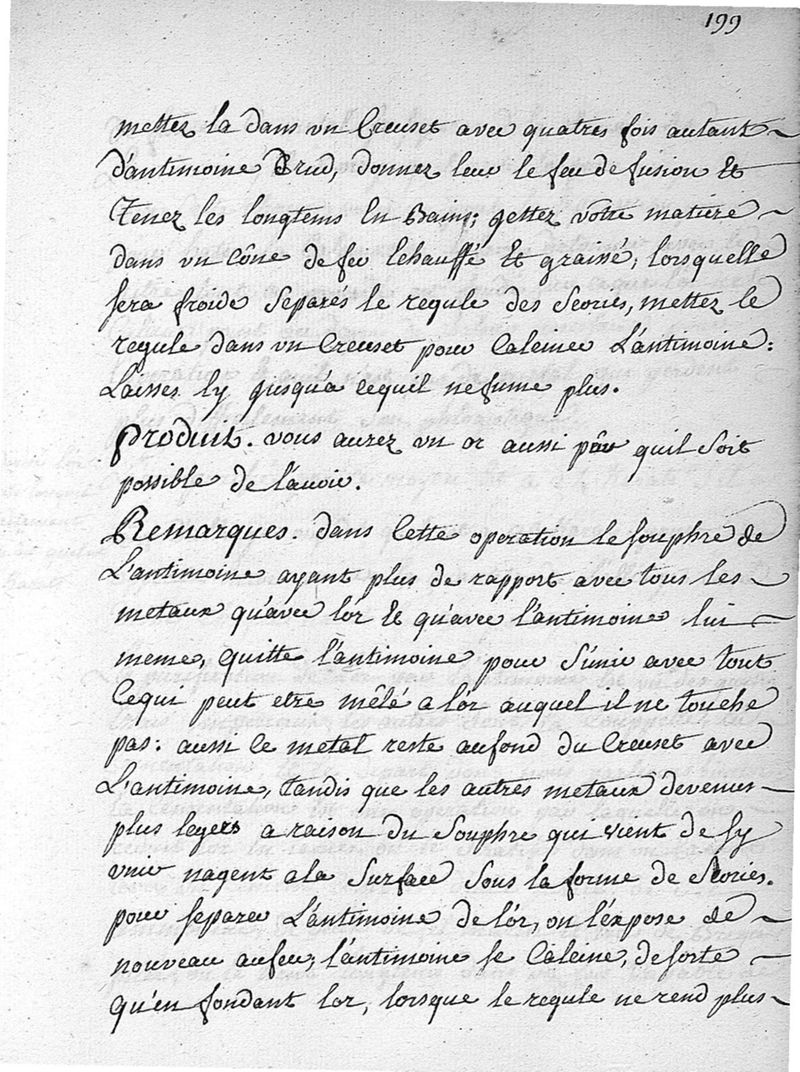 199
mettez la dans un Creuset avec quatres fois autant
d'antimoine Crud, donnez leur le feu de fusion Et
Tenez les longtems En Bains; gettez votre matiere
dans un cône de fer Echauffé Et graissé, lorsquelle
sera froide Separés le regule des Scories, mettez le
regule dans un Creuset pour Calciner L'antimoine:
Laisses ly jusqu'a cequil ne fume plus.
Produit. vous aurez un or aussi pûr quil soit
possible de l'avoir.
Remarques. dans Cette operation le souphre de
L'antimoine ayant plus de rapport avec tous les
metaux qu'avec l'or Et qu'avec l'antimoine lui
meme, quitte l'antimoine pour S'unir avec tout
Cequi peut etre mêlé a l'or auquel il ne touche
pas: aussi Ce metal reste aufond du Creuset avec
L'antimoine, tandis que les autres metaux devenus
plus legers a raison du Souphre qui vient de Sy
unir nagent a la Surface Sous la forme de Scories.
pour Separer L'antimoine de l'or, on l'expose de
nouveau aufeu, l'antimoine se Calcine, de sorte
qu'en fondant l'or, lorsque le regule ne rend plus